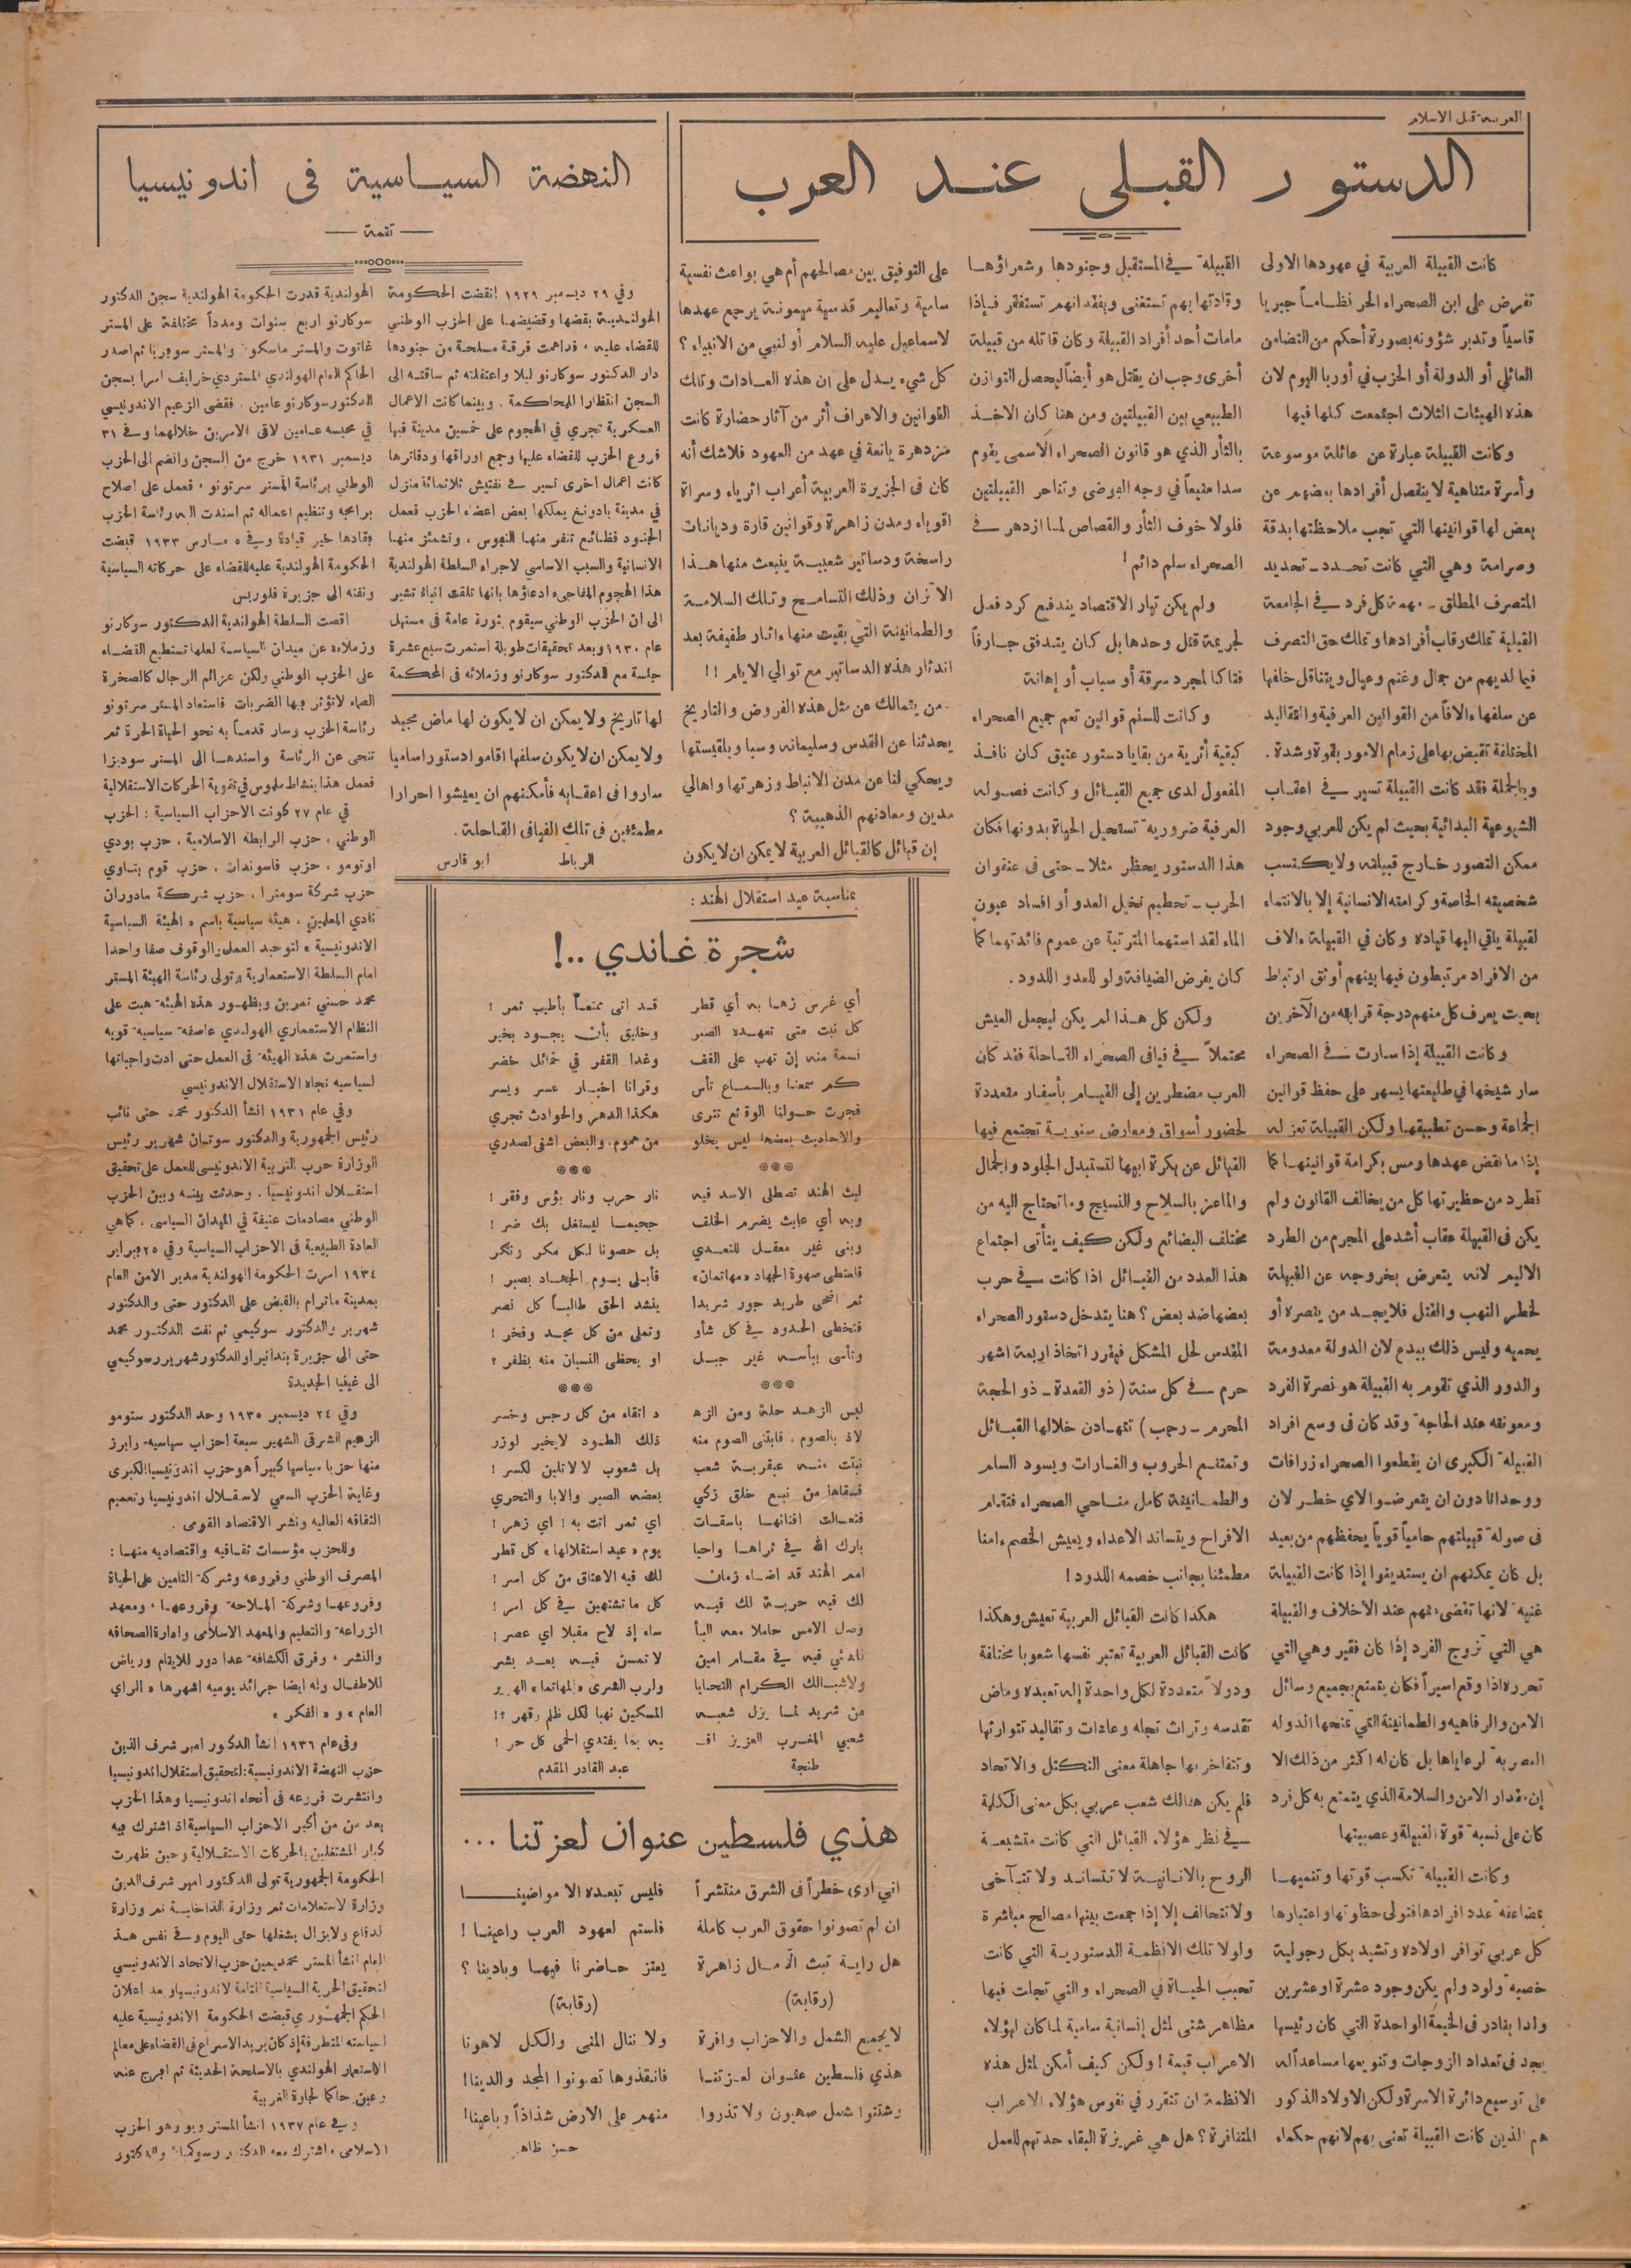 العربية قبل الاسلام
الدستور القبلى عند العرب
كانت القبيلة العربية في عهودها الاولى
تفرض على ابن الصحراء الحر نظاماً جبريا
قاسياً وتدبر شؤونه بصورة أحكم من التضامن
العائلي أو الدولة أو الحزب في أوربا اليوم لان
هذه الهيئات الثلاث اجتمعت كلها فيها
وكانت القبيلة عبارة عن عائلة موسوعة
وأسرة متناهية لا ينفصل أفرادها بعضهم عن
بعض لها قوانينها التي تجب ملاحظتها بدقة
وصرامة وهي التي كانت تحدد ـ تحديد
المتصرف المطلق ـ مهمة كل فرد في الجامعة
القبلية تملك رقاب أفرادها وتملك حق التصرف
فيما لديهم من جمال وغنم وعيال ويتناقل خلفها
عن سلفها ءالافاً من القوانين العرفية والتقاليد
المختلفة تقبض بها على زمام الامور بقوة وشدة .
وبالجملة فقد كانت القبيلة تسير في اعقاب
الشيوعية البدائية بحيث لم يكن للعربي وجود
ممكن التصور خارج قبيلته ولا يكتسب
شخصيته الخاصة وكرامته الانسانية إلا بالانتماء
لقبيلة يلقي اليها قياده وكان في القبيلة ءالاف
من الافراد مرتبطون فيما بينهم أوثق ارتباط
بحيث يعرف كل منهم درجة قرابته من الآخرين
وكانت القبيلة إذا سارت في الصحراء
سار شيخها في طليعتها يسهر على حفظ قوانين
الجماعة وحسن تطبيقها ولكن القبيلة تعزله
إذا ما نقض عهدها ومس بكرامة قوانينها كما
تطرد من حظيرتها كل من يخالف القانون ولم
يكن في القبيلة عقاب أشد على المجرم من الطرد
الاليم لانه يتعرض بخروجه عن القبيلة
لخطر النهب والقتل فلا يجد من ينصره أو
يحميه وليس ذلك ببدع لان الدولة معدومة
والدور الذي تقوم به القبيلة هو نصرة الفرد
ومعونته عند الحاجة وقد كان في وسع افراد
القبيلة الكبرى ان يقطعوا الصحراء زرافات
ووحدانا دون ان يتعرضوا لاي خطر لان
في صولة قبيلتهم حامياً قوياً يحفظهم من بعيد
بل كان يمكنهم ان يستدينوا إذا كانت القبيلة
غنية لانها تقضى عنهم عند الأخلاف والقبيلة
هي التي تزوج الفرد إذا كان فقير وهي التي
تحرره اذا وقع اسيراً فكان يتمتع بجميع وسائل
الامن والرفاهية والطمانينة التي تمنحها الدولة
العصرية لرعاياها بل كان له اكثر من ذلك الا
إن مقدار الامن والسلامة الذي يتمتع به كل فرد
كان على نسبة قوة القبيلة وعصبيتها
وكانت القبيلة تكسب قوتها وتنميها
بمضاعفة عدد افرادها فتولى حظوتها واعتبارها
كل عربي توافر اولاده وتشيد بكل رجولية
خصبة ولود ولم يكن وجود عشرة او عشرين
ولدا بنادر في الخيمة الواحدة التي كان رئيسها
يجد في تعداد الزوجات وتنويعها مساعدا له
على توسيع دائرة الاسرة ولكن الاولاد الذكور
هم الذين كانت القبيلة تعنى بهم لانهم حكماء
القبيلة في المستقبل وجنودها وشعراؤها
وقادتها بهم تستغنى وبفقدانهم تستفقر فإذا
مامات أحد أفراد القبيلة وكان قاتله من قبيلة
أخرى وجب ان يقتل هو أيضاً ليحصل التوازن
الطبيعي بين القبيلتين ومن هنا كان الاخذ
بالثأر الذي هو قانون الصحراء الاسمى يقوم
سدا منيعاً في وجه الفوضى وتناحر القبيلتين
فلولا خوف الثأر والقصاص لما ازدهر في
الصحراء سلم دائم !
ولم يكن تيار الاقتصاد يندفع كرد فعل
لجريمة قتل وحدها بل كان يتدفق جارفاً
فتاكا لمجرد سرقة أو سباب أو إهانة
وكانت للسلم قوانين تعم جميع الصحراء
كبقية أثرية من بقايا دستور عتيق كان نافذ
المفعول لدى جميع القبائل وكانت فصوله
العرفية ضرورية تستحيل الحياة بدونها فكان
هذا الدستور يحظر مثلا ـ حتى في عنفوان
الحرب ـ تحطيم نخيل العدو أو افساد عيون
الماء لقداستهما المترتبة عن عموم فائدتهما كما
كان يفرض الضيافة ولو للعدو اللدود .
ولكن كل هذا لم يكن ليجعل العيش
محتملاً في فيافي الصحراء القاحلة فقد كان
العرب مضطرين إلى القيام بأسفار متعددة
لحضور أسواق ومعارض سنوية تجتمع فيها
القبائل عن بكرة ابيها لتستبدل الجلود والجمال
والماعز بالسلاح والنسيج وما تحتاج اليه من
مختلف البضائع ولكن كيف يتأتى اجتماع
هذا العدد من القبائل اذا كانت في حرب
بعضها ضد بعض ؟ هنا يتدخل دستور الصحراء
المقدس لحل المشكل فيقرر اتخاذ اربعة اشهر
حرم في كل سنة ( ذو القعدة ـ ذو الحجة
المحرم ـ رجب ) تتهادن خلالها القبائل
وتمتنع الحروب والغارات ويسود السلم
والطمانينة كامل مناحي الصحراء فتقام
الافراح ويتساند الاعداء ويعيش الخصم ءامنا
مطمئنا بجانب خصمه اللدود !
هكذا كانت القبائل العربية تعيش وهكذا
كانت القبائل العربية تعتبر نفسها شعوبا مختلفة
ودولاً متعددة لكل واحدة إله تعبده وماض
تقدسه وتراث تجله وعادات وتقاليد تتوارثها
وتتفاخر بها جاهلة معنى التكتل والاتحاد
فلم يكن هنالك شعب عربي بكل معنى الكلمة
في نظر هؤلاء القبائل التي كانت متشبعة
الروح بالانانية لا تتساند ولا تتآخى
ولا تتحالف إلا إذا جمعت بينها مصالح مباشرة
ولولا تلك الانظمة الدستورية التي كانت
تحبب الحياة في الصحراء والتي تجلت فيها
مظاهر شتى لمثل إنسانية سامية لما كان لهؤلاء
الاعراب قيمة ! ولكن كيف أمكن لمثل هذه
الانظمة ان تتقرر في نفوس هؤلاء الاعراب
المتنافرة ؟ هل هي غريزة البقاء حدتهم للعمل
على التوفيق بين مصالحهم أم هي بواعث نفسية
سامية وتعاليم قدسية ميمونة يرجع عهدها
لاسماعيل عليه السلام أو لنبي من الانبياء ؟
كل شيء يدل على ان هذه العادات وتلك
القوانين والاعراف أثر من آثار حضارة كانت
مزدهرة يانعة في عهد من العهود فلا شك أنه
كان في الجزيرة العربية أعراب اثرياء وسراة
اقوياء ومدن زاهرة وقوانين قارة وديانات
راسخة ودساتير شعبية ينبعث منها هذا
الاتزان وذلك التسامح وتلك السلامة
والطمانينة التي بقيت منها ءاثار طفيفة بعد
اندثار هذه الدساتير مع توالي الايام !!
من يتمالك عن مثل هذه الفروض والتاريخ
يحدثنا عن القدس وسليمانه وسبا وبلقيستها
ويحكي لنا عن مدن الانباط وزهرتها واهالي
مدين ومعادنهم الذهبية ؟
إن قبائل كالقبائل العربية لا يمكن ان لا يكون
لها تاريخ ولا يمكن ان لا يكون لها ماض مجيد
ولا يمكن ان لا يكون سلفها اقاموا دستورا ساميا
ساروا في اعقابه فأمكنهم ان يعيشوا احرارا
مطمئنين في تلك الفيافي القاحلة .
الرباط ابو فارس
النهضة السياسية فى اندونيسيا
— تتمة —
وفي ٢٩ ديسمبر ١٩٢٩ انقضت الحكومة
الهولندية بقضها وقضيضها على الحزب الوطني
للقضاء عليه ، فداهمت فرقة مسلحة من جنودها
دار الدكتور سوكارنو ليلا واعتقلته ثم ساقته الى
السجن انتظارا للمحاكمة . وبينما كانت الاعمال
العسكرية تجري في الهجوم على خمسين مدينة فيها
فروع الحزب للقضاء عليها وجمع اوراقها ودفاترها
كانت اعمال اخرى تسير في تفتيش ثلاثمائة منزل
في مدينة بادونغ يملكها بعض اعضاء الحزب فعمل
الجنود فظائع تنفر منها النفوس ، وتشمئز منها
الانسانية والسبب الاساسي لاجراء السلطة الهولندية
هذا الهجوم المفاجىء ادعاؤها بانها تلقت انباء تشير
الى ان الحزب الوطني سيقوم بثورة عامة في مستهل
عام ١٩٣٠ وبعد تحقيقات طويلة استمرت سبع عشرة
جلسة مع الدكتور سوكارنو وزملائه في المحكمة
الهولندية قدرت الحكومة الهولندية سجن الدكتور
سوكارنو اربع سنوات ومدداً مختلفة على المستر
غاتوت والمستر ماسكون والمستر سوبريا ثم اصدر
الحاكم العام الهولندي المستر دي خرايف امرا بسجن
الدكتور سوكارنو عامين . فقضى الزعيم الاندونيسي
في محبسه عامين لاقى الامرين خلالهما وفي ٣١
ديسمبر ١٩٣١ خرج من السجن وانضم الى الحزب
الوطني برئاسة المستر سرتونو ، فعمل على اصلاح
برامجه وتنظيم اعماله ثم اسندت اليه رئاسة الحزب
فقادها خير قيادة وفي ٥ مارس ١٩٣٣ قبضت
الحكومة الهولندية عليه للقضاء على حركاته السياسية
ونفته الى جزيرة فلوريس
اقصت السلطة الهولندية الدكتور سوكارنو
وزملاءه عن ميدان السياسة لعلها تستطيع القضاء
على الحزب الوطني ولكن عزائم الرجال كالصخرة
الصماء لا تؤثر فيها الضربات فاستعاد المستر سرتونو
رئاسة الحزب وسار قدماً به نحو الحياة الحرة ثم
تنحى عن الرئاسة واسندها الى المستر سوديزا
فعمل هذا بنشاط ملموس في تقوية الحركات الاستقلالية
في عام ٢٧ كونت الاحزاب السياسية : الحزب
الوطني ، حزب الرابطة الاسلامية ، حزب بودي
اوتومو ، حزب فاسوندان ، حزب قوم بتاوي
حزب شركة سومترا ، حزب شركة مادوران
نادي المعلمين ، هيئة سياسية باسم « الهيئة السياسية
الاندونيسية » لتوحيد العمل والوقوف صفا واحدا
امام السلطة الاستعمارية وتولى رئاسة الهيئة المستر
محمد حسني تمرين وبظهور هذه الهيئة هبت على
النظام الاستعماري الهولندي عاصفة سياسية قوية
واستمرت هذه الهيئة في العمل حتى ادت واجباتها
السياسية تجاه الاستقلال الاندونيسي
وفي عام ١٩٣١ انشأ الدكتور محمد حتى نائب
رئيس الجمهورية والدكتور سوتان شهرير رئيس
الوزارة حزب التربية الاندونيسى للعمل على تحقيق
استقلال اندونيسيا . وحدثت بينه وبين الحزب
الوطني مصادمات عنيفة في الميدان السياسى ، كما هي
العادة الطبيعية في الاحزاب السياسية وفي ٢٥ فبراير
١٩٣٤ امرت الحكومة الهولندية مدير الامن العام
بمدينة ماترام بالقبض على الدكتور حتى والدكتور
شهرير والدكتور سوكيمي ثم نفت الدكتور محمد
حتى الى جزيرة بندانيرا والدكتور شهرير وسوكيمي
الى غينيا الجديدة
وفي ٢٤ ديسمبر ١٩٣٥ وحد الدكتور ستومو
الزعيم الشرقى الشهير سبعة احزاب سياسية وابرز
منها حزبا سياسيا كبيراً هو حزب اندونيسيا الكبرى
وغاية الحزب السعي لاستقلال اندونيسيا وتعميم
الثقافة العالية ونشر الاقتصاد القومي .
وللحزب مؤسسات ثقافية واقتصادية منها :
المصرف الوطني وفروعه وشركة التامين على الحياة
وفروعها وشركة الملاحة وفروعها ، ومعهد
الزراعة والتعليم والمعهد الاسلامى وادارة الصحافة
والنشر ، وفرق الكشافة عدا دور للايتام ورياض
للاطفال وله ايضا جرائد يومية اشهرها « الراي
العام » و « الفكر »
وفي عام ١٩٣٦ انشأ الدكتور امير شرف الدين
حزب النهضة الاندونيسية لتحقيق استقلال اندونيسيا
وانتشرت فروعه في أنحاء اندونيسيا وهذا الحزب
يعد من من أكبر الاحزاب السياسية اذ اشترك فيه
كبار المشتغلين بالحركات الاستقلالية وحين ظهرت
الحكومة الجمهورية تولى الدكتور امير شرف الدين
وزارة الاستعلامات ثم وزارة الداخلية ثم وزارة
الدفاع ولا يزال يشغلها حتى اليوم وفي نفس هذ
العام انشأ المستر محمد يمين حزب الاتحاد الاندونيسي
لتحقيق الحرية السياسية التامة لاندونيسيا وبعد اعلان
الحكم الجمهوري قبضت الحكومة الاندونيسية عليه
لسياسته المتطرفة إذ كان يريد الاسراع في القضاء على معالم
الاستعمار الهولندي بالاسلحة الحديثة ثم افرج عنه
وعين حاكما لجاوة الغربية
وفي عام ١٩٣٧ انشأ المستر ويوو هو الحزب
الاسلامى واشترك معه الدكتور سوكمان والدكتور
بمناسبة عيد استقلال الهند :
شجرة غاندي ..!
أي غرس زها به أي قطر قد اتى ممتعاً بأطيب ثمر !
كل نبت متى تعهده الصبر وخليق بأن يجود بخير
نسمة منه إن تهب على القف وغدا القفر في خمائل خضر
كم سمعنا وبالسماع تأس وقرانا اخبار عسر ويسر
فجرت حولنا الوقائع تترى هكذا الدهر والحوادث تجري
والاحاديث بعضها ليس يخلو من هموم، والبعض اشفى لصدري
***
ليت الهند تصطلى الاسد فيه نار حرب ونار بؤس وفقر !
وبه أي عابث يضرم الخلف جحيما ليستغل بك ضر !
وبنى غير معقل للتعدي بل حصونا لكل مكر ونكر
فامتطى صهوة الجهاد «مهاتمان» فأبلى يوم الجهاد بصبر !
ثم اضحى طريد جور شريدا ينشد الحق طالباً كل نصر
فتخطى الحدود في كل شأو وتملى من كل مجد وفخر !
وتأسى ببأسه غير جبل او يحظى النسيان منه بظفر ؟
***
ليس الزهد حلة ومن الزه د اتقاء من كل رجس وخسر
لاذ بالصوم ، فابتنى الصوم منه ذلك الطود لا يخير لوزر
نبتت منه عبقرية شعب بل شعوب لا لا تلين لكسر !
فسقاها من نبع خلق زكي بعضه الصبر والابا والتحري
فتعالت افنانها باسقات اي ثمر اتت به ! اي زهر !
بارك الله في ثراها واحيا يوم « عيد استقلالها » كل قطر
امم الهند قد اضاء زمان لك فيه الاعتاق من كل اسر !
لك فيه حرية لك فيه كل ما تشتهين في كل اسر !
وصل الامس حاملا معه البأ ساء إذ لاح مقبلا اي عصر !
ناهئي فيه في مقام امين لا تمسن فيه بعد بشر
ولأشبالك الكرام التحايا ولرب الشرى «المهاتما» الهزبر
من شريد لما يزل شعبه المسكين نهبا لكل ظلم وقهر ؟!
شعبي المغرب العزيز اف يه بما يفتدي الحمى كل حر !
طنجة عبد القادر المقدم
هذي فلسطين عنوان لعزتنا ...
اني ارى خطراً في الشرق منتشراً فليس تبعده الا مواضينا
ان لم تصونوا حقوق العرب كاملة فلستم لعهود العرب راعينا !
هل راية تبث الآمال زاهرة يعتز حاضرنا فيها وبادينا ؟
(رقابة) (رقابة)
لا يجميع الشمل والاحزاب وافرة ولا ننال المنى والكل لاهونا
هذي فلسطين عنوان لعزتنا فانقذوها تصونوا المجد والدينا!
وشتتوا شمل صهيون ولا تذروا منهم على الارض شذاذاً وباغينا!
حسن ظاهر